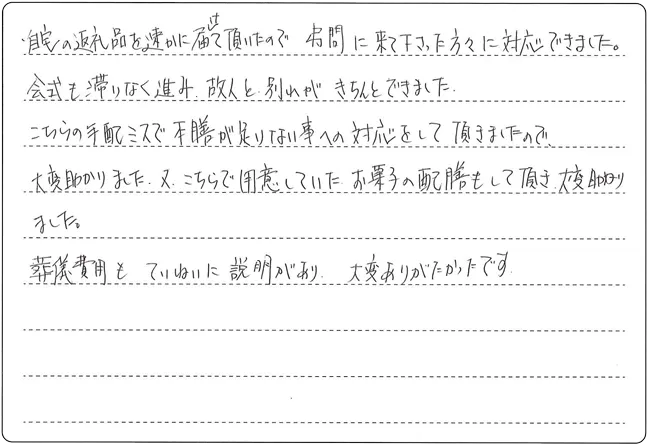 自宅の返礼品を速かに届けて頂いたので 弔問に来て下さった方々に対応できました。
会式も滞りなく進み、故人と別れが きちんとできました。
こちらの手配ミスで 本膳が足りない事への対応をして 頂きましたので、
大変助かりました。又、こちらで用意していた お菓子の配膳もして頂き、大変助かり
ました。
葬儀費用も ていねいに 説明があり 大変ありがたかったです。